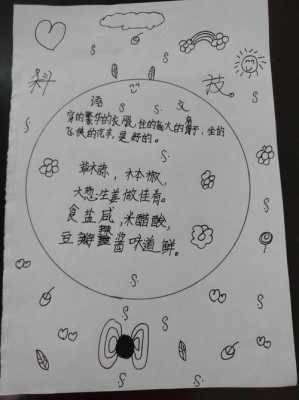 科 技
语 文
穿的繁华的衣服,住的极大的房子,坐的
飞快的汽车,是野的。
草木珠,木本椒,
大葱生姜做佳肴。
食盐咸,米醋酸,
豆瓣酱味道鲜。